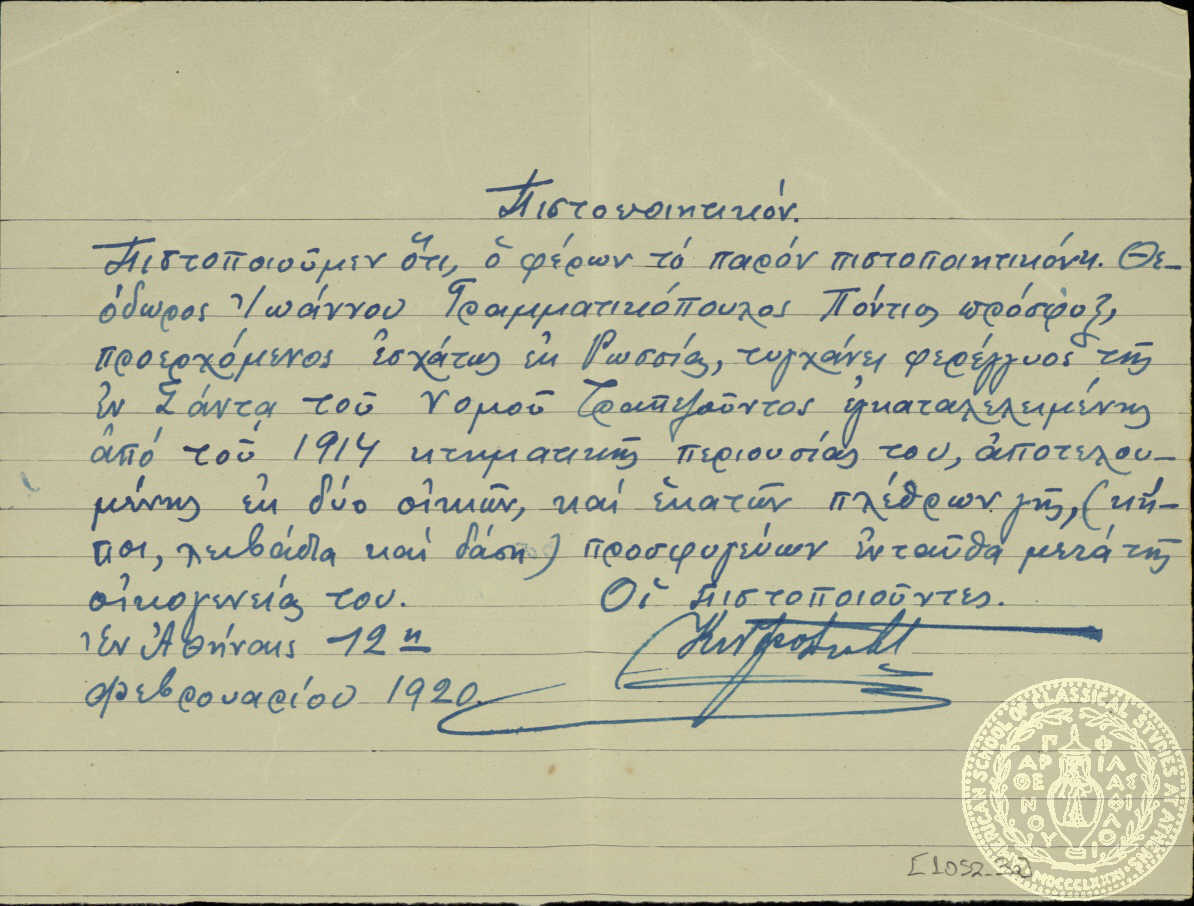 Πιστοποιητικόν.
Πιστοποιοῦμεν ὅτι, ὁ φέρων τό παρόν πιστοποιητικόν κ. Θε-
όδωρος Ἰωάννου Γραμματικόπουλος Πόντιος πρόσφυξ,
προερχόμενος ἐσχάτως ἐκ Ρωσσίας, τυγχάνει φερέγγυος τῆς
ἐν Σάντα τοῦ Νομοῦ Τραπεζοῦντος ἐγκαταλελειμένης
ἀπό τοῦ 1914 κτηματικῆς περιουσίας του, ἀποτελου-
μένης ἐκ δύο οἰκιῶν, καί ἑκατῶν πλέθρων γῆς, (κῆ-
ποι, λειβάδια καί δάση) προσφυγεύων ἐνταῦθα μετά τῆς
οἰκογενείας του. Οἱ πιστοποιοῦντες.
Ἐν Ἀθήναις 12ῃ
Φεβρουαρίου 1920.
AMERICAN SCHOOL OF CLASSICAL STUDIES AT ATHENS
ΠΑΡΘΕΝΟΥ ΦΙΛΑΣ ΦΙΛΟΙ
MDCCCLXXXI
[1052-32]